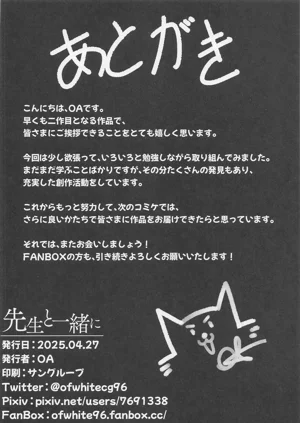 あとがき
こんにちは、OAです。
早くも二作目となる作品で、
皆さまにご挨拶できることをとても嬉しく思います。
今回は少し欲張って、いろいろと勉強しながら取り組んでみました。
まだまだ学ぶことばかりですが、その分たくさんの発見もあり、
充実した創作活動をしています。
これからもっと努力して、次のコミケでは、
さらに良いかたちで皆さまに作品をお届けできたらと思っています。
それでは、またお会いしましょう！
FANBOXの方も、引き続きよろしくお願いいたします！
先生と一緒に
発行日：2025.04.27
発行者：OA
印刷：サングループ
Twitter：@ofwhitecg96
Pixiv：pixiv.net/users/7691338
FanBox：ofwhite96.fanbox.cc/